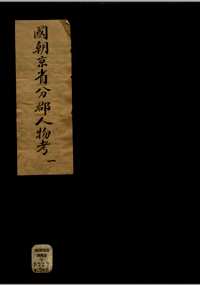 國朝京省分郡人物考 一